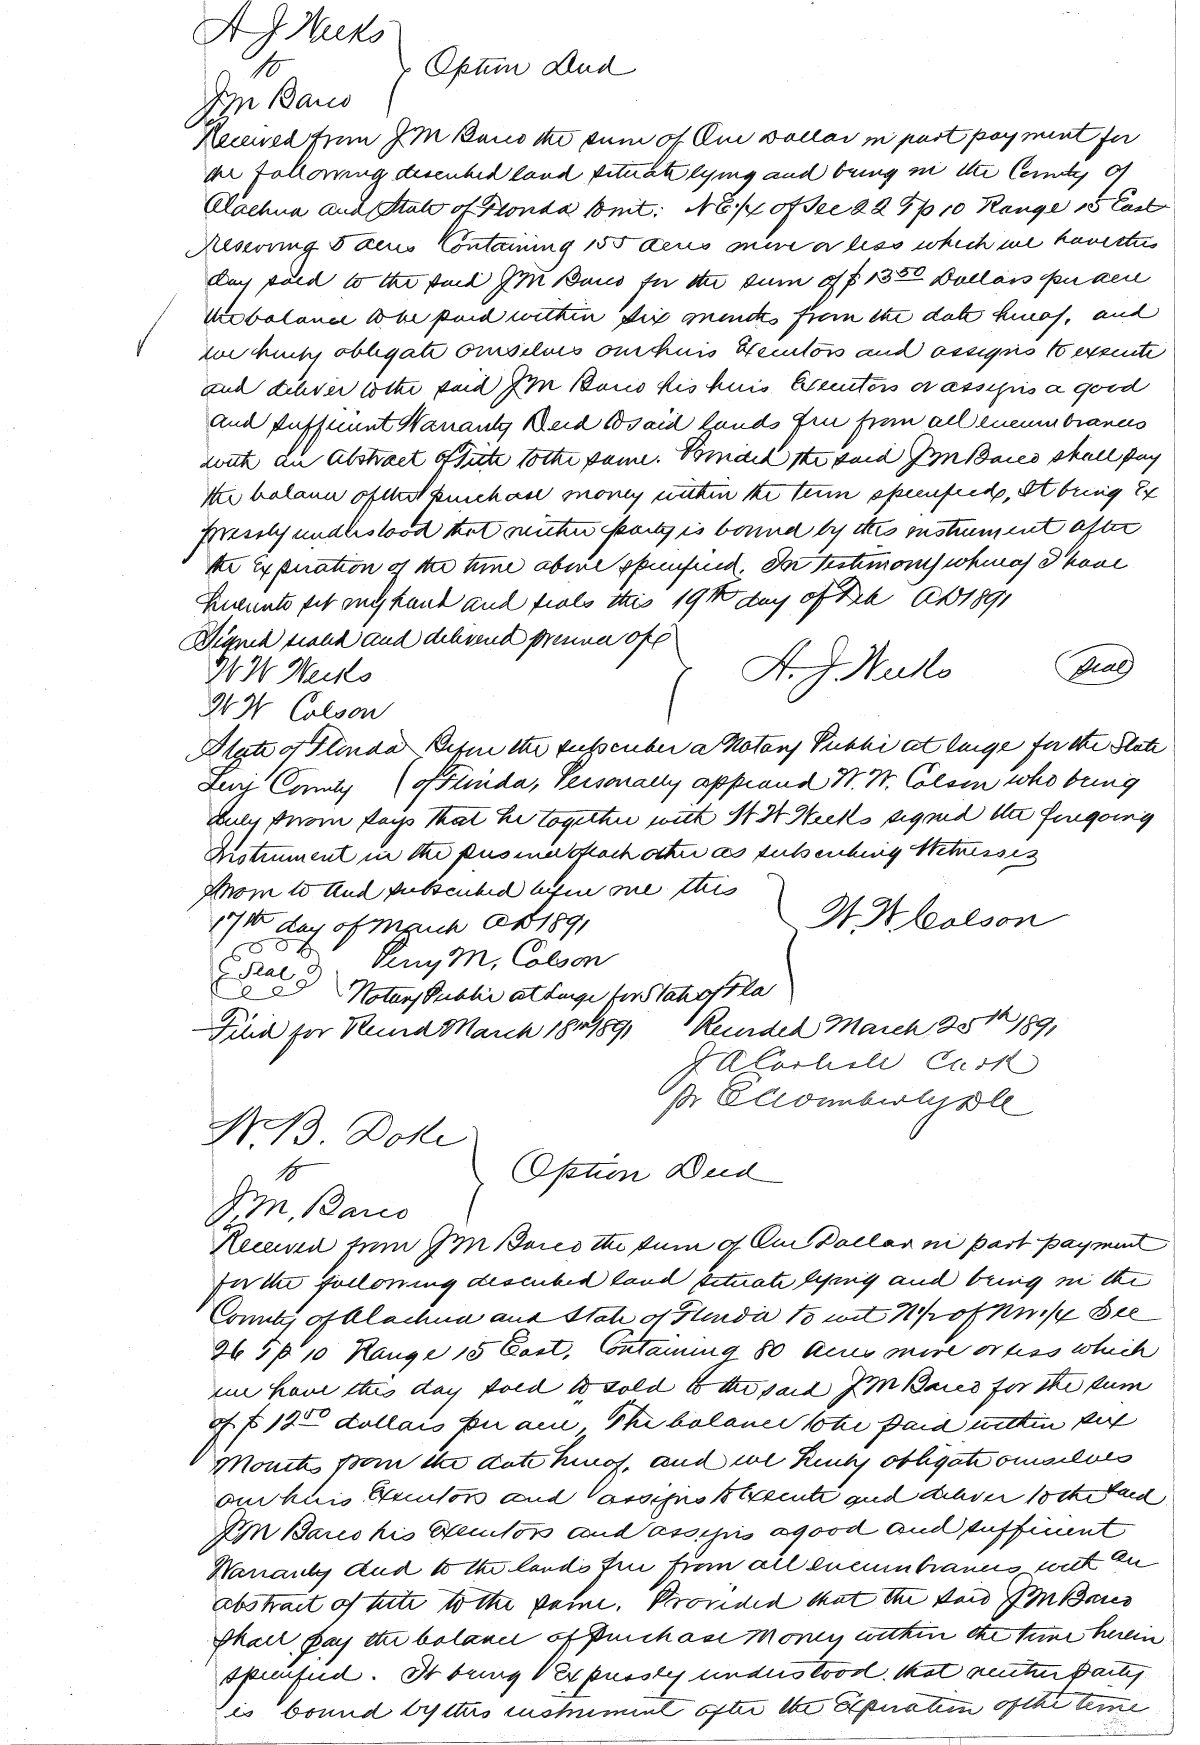 A J Weeks
to
Option Deed
J M Barco
Received from J M Barco the sum of One Dollar in part payment for
the following described land situate lying and being in the County of
Alachua and State of Florida to wit: N E 1/4 of Sec 22 Tp 10 Range 15 East
reserving 5 acres Containing 155 acres more or less which we have this
day sold to the said J M Barco for the sum of $13 50 Dollars per acre
the balance to be paid within six months from the date hereof, and
we hereby obligate ourselves our heirs Executors and assigns to execute
and deliver to the said J M Barco his heirs Executors or assigns a good
and sufficient Warranty Deed to said lands free from all encumbrances
with an Abstract of Title to the same. Provided the said J M Barco shall pay
the balance of the purchase money within the term specified, It being Ex
pressly understood that neither party is bound by this instrument after
the Expiration of the time above specified. In testimony whereof I have
hereunto set my hand and seals this 19th day of Feb AD 1891
Signed sealed and delivered presence of
W W Weeks
A. J. Weeks Seal
W W Colson
State of Florida Before the subscriber a Notary Public at large for the State
Levy County of Florida, Personally appeared W. W. Colson who being
duly sworn says that he together with W W Weeks signed the foregoing
Instrument in the presence of each other as subscribing Witnesses
Sworn to and subscribed before me this
17th day of March AD 1891
W. W. Colson
Perry M. Colson
Seal
Notary Public at Large for State of Fla
Filed for Record March 18th 1891 Recorded March 25th 1891
J A Carlisle Clerk
pr
W. B. Doke
to
Option Deed
J. M. Barco
Received from J M Barco the sum of One Dollar in part payment
for the following described land situate lying and being in the
County of Alachua and State of Florida to wit N 1/2 of NW 1/4 Sec
26 Tp 10 Range 15 East, Containing 80 Acres more or less which
we have this day sold to sold to the said J M Barco for the sum
of $12 50 dollars per acre, The balance to be paid within six
Months from the date hereof, and we hereby obligate ourselves
our heirs Executors and assigns to Execute and deliver to the said
J M Barco his Executors and assigns a good and sufficient
Warranty deed to the lands free from all encumbrances with an
abstract of title to the same. Provided that the said J M Barco
shall pay the balance of purchase Money within the time herein
specified. It being Expressly understood that neither party
is bound by this instrument after the Expiration of the time